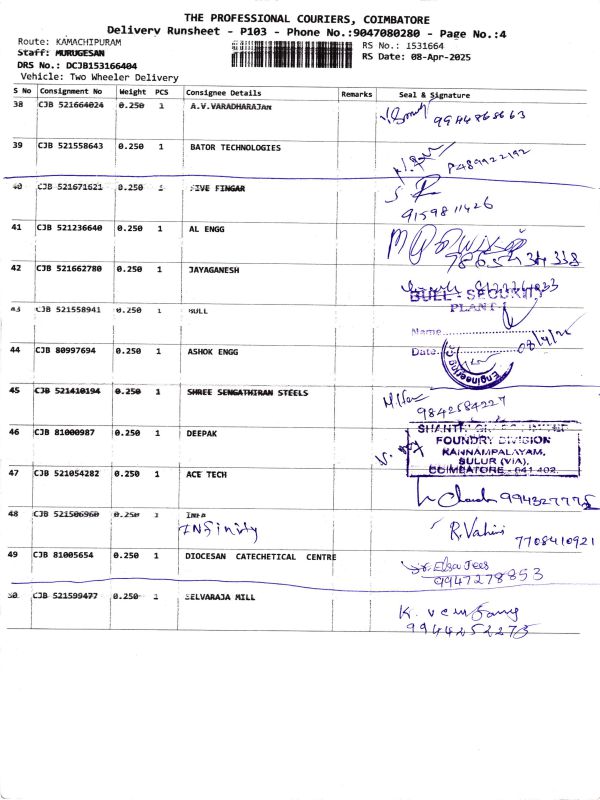 THE PROFESSIONAL COURIERS, COIMBATORE
Delivery Runsheet - P103 - Phone No.:9047080280 - Page No.:4
Route: KAMACHIPURAM
RS No.: 1531664
Staff: MURUGESAN
RS Date: 08-Apr-2025
DRS No.: DCJB153166404
Vehicle: Two Wheeler Delivery
S No Consignment No Weight PCS Consignee Details Remarks Seal & Signature
38 CJB 521664024 0.250 1 A.V.VARADHARAJAN
39 CJB 521558643 0.250 1 BATOR TECHNOLOGIES
40 CJB 521671621 0.250 1 FIVE FINGAR
9159811426
41 CJB 521236640 0.250 1 AL ENGG
42 CJB 521662780 0.250 1 JAYAGANESH
BULL - SECURITY
PLANT-I
43 CJB 521558941 0.250 1 BULL
Name
Date
44 CJB 80997694 0.250 1 ASHOK ENGG
Engineering
45 CJB 521410194 0.250 1 SHREE SENGATHIRAN STEELS
9842584227
46 CJB 81000987 0.250 1 DEEPAK
SHANTHI
FOUNDRY DIVISION
KANNAMPALAYAM,
SULUR (VIA),
COIMBATORE - 641 402.
47 CJB 521054282 0.250 1 ACE TECH
48 CJB 521506960 0.250 1 INFA
INfinity
R.Vahini 7708410921
49 CJB 81005654 0.250 1 DIOCESAN CATECHETICAL CENTRE
9947278853
50 CJB 521599477 0.250 1 SELVARAJA MILL
9944252273